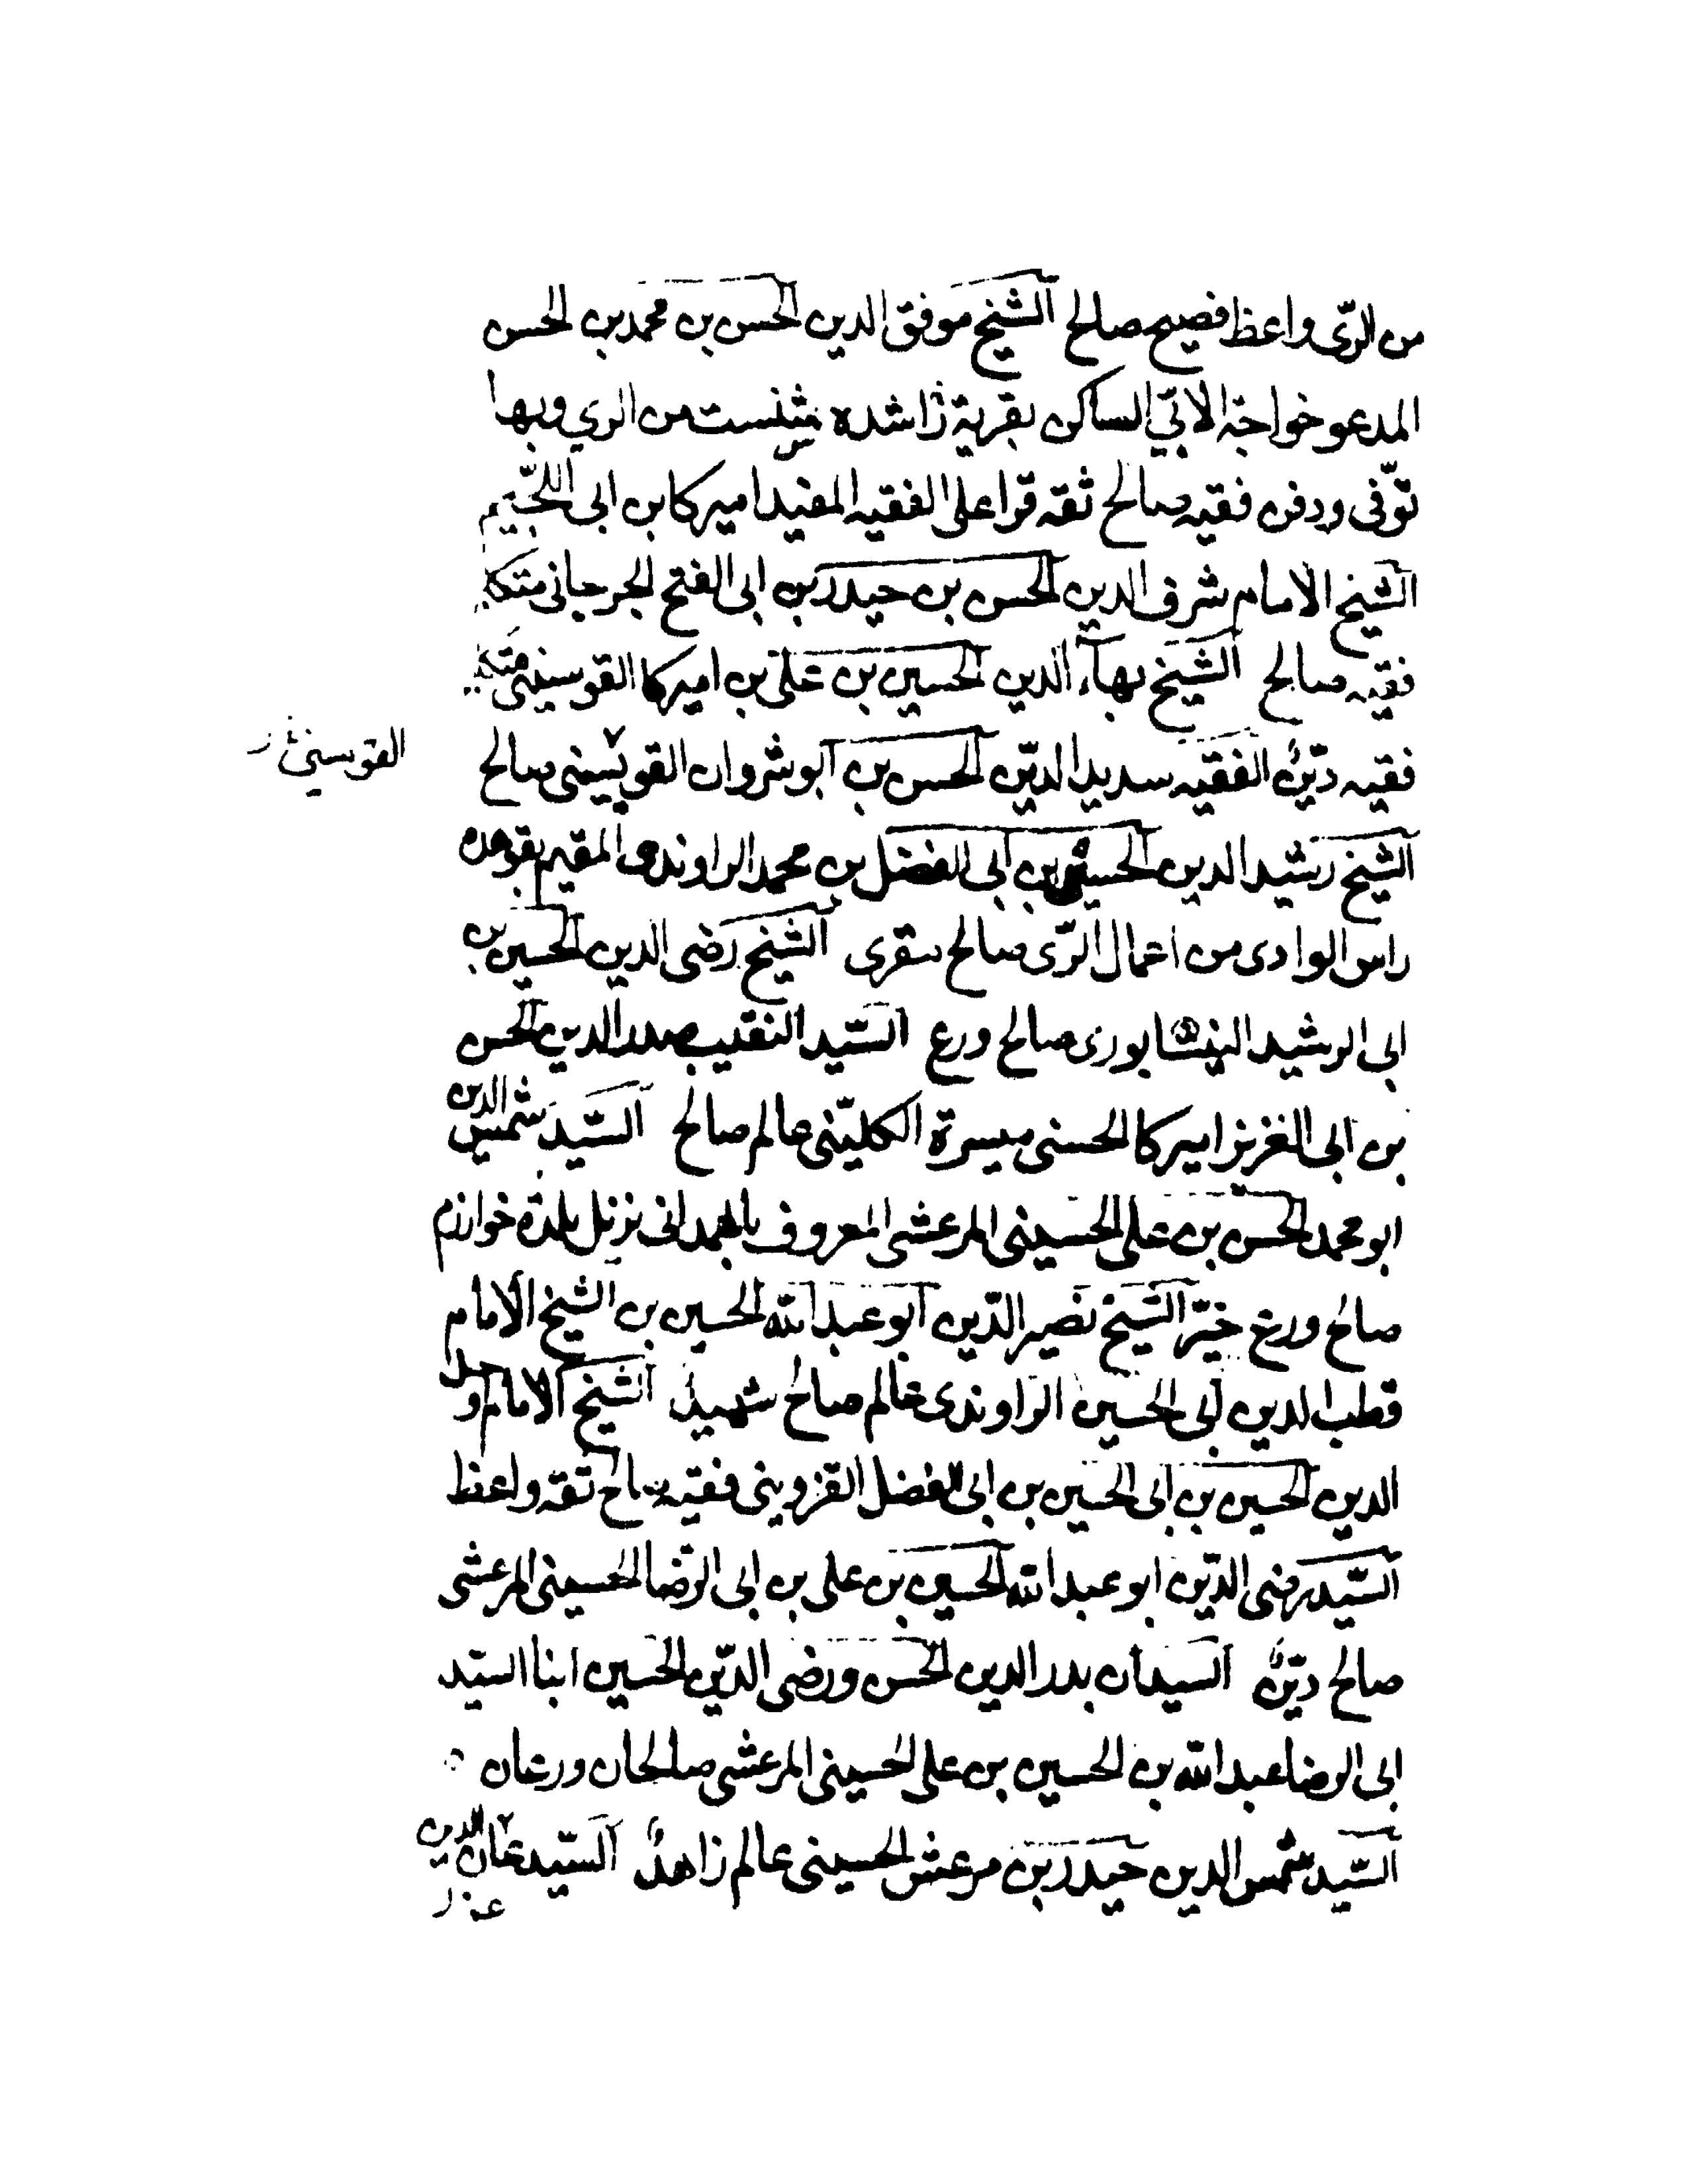 من الرّى واعظ فصيح صالح الشيخ موفق الدين الحسن بن محمد بن الحسن
المدعو خواجة الابّي الساكن بقرية راشده من الري وبها
توّفى ودفن فقيه صالح ثقه قرا على الفقيه المفيد اميركا بن ابى اللجّيم
الشيخ الامام شرف الدين الحسن بن حيدر بن ابى الفتح الجرجانى متكلم
فقيه صالح الشيخ بهآء الدين الحسين بن على بن اميركا القوسينى متكلم
فقيه ديّنٌ الفقيه سديد الدّين الحسن بن ابوشروان القوسينى صالح
القوسينى
الشيخ رشيد الدين الحسين بن ابى الفضل بن محمد الراوندى المقيم بقوهده
راس الوادى من اعمال الرّى صالح مقرى الشيخ رضى الدين الحسين بن
ابى الرشيد النيشابورى صالح ورع السّيد النقيب صدر الدين الحسن
بن ابى العزيز اميركا الحسنى ميسرة الكليّنى عالم صالح السّيد شمس الدين
ابو محمد الحسن بن على الحسينى المرعشى المعروف بالهمدانى نزيل بلدة خوارزم
صالح ورع خيّر الشيخ نصير الدّين ابو عبد الله الحسين بن الشيخ الامام
قطب الدين ابى الحسين الراوندى عالم صالح شهيد الشيخ الامام
الدين الحسين بن ابى الحسين بن ابى الفضل القزوينى فقيه صالح ثقه واعظ
السّيد رضى الدّين ابو عبد الله الحسين بن على بن ابى الرّضا الحسينى المرعشى
صالح ديّنٌ السيدان بدر الدين الحسن ورضى الدّين الحسين ابنا السيّد
ابى الرضا عبد الله بن الحسين بن على الحسينى المرعشى صالحان ورعان
السّيد شمس الدين حيدر بن مرعش الحسينى عالم زاهدٌ السّيد الدين